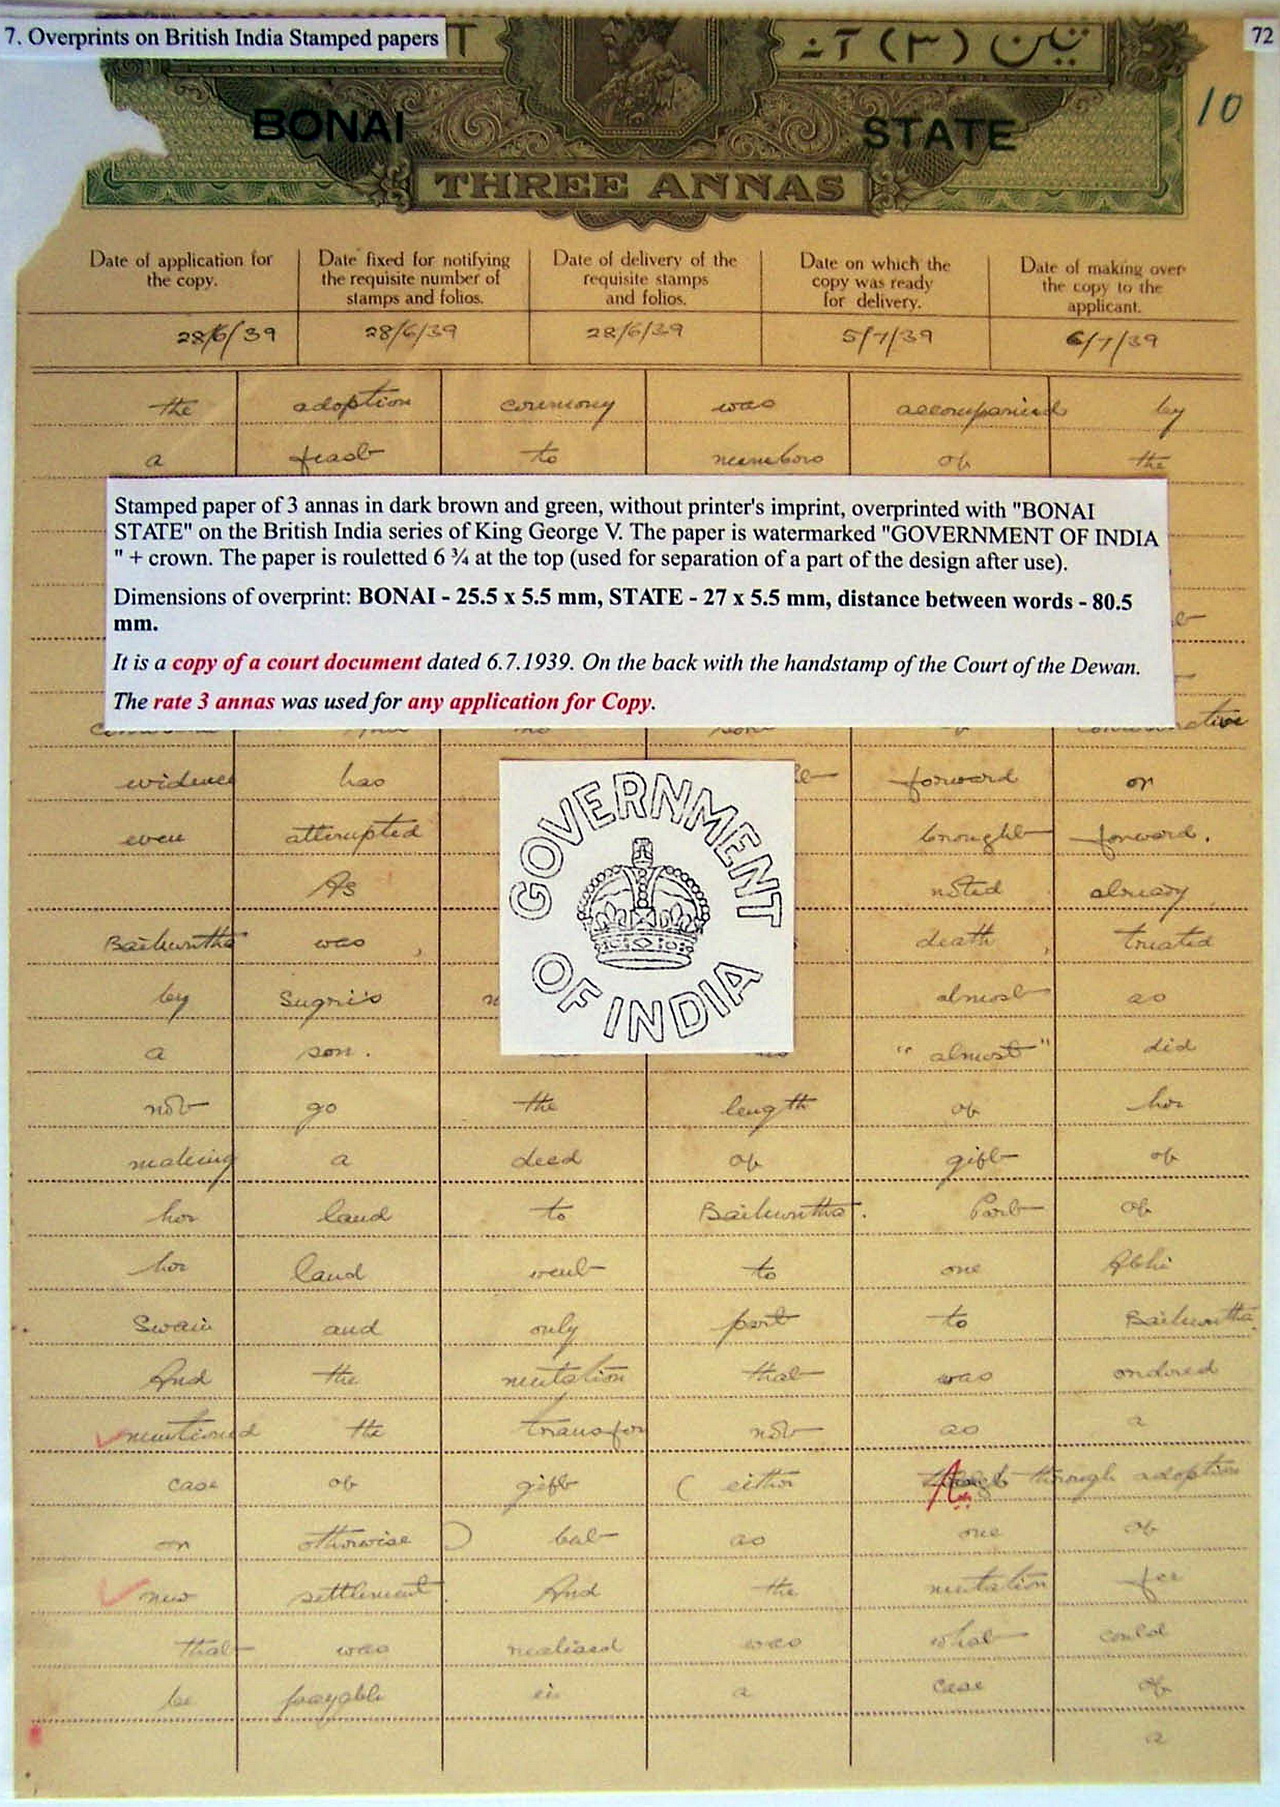 7. Overprints on British India Stamped papers
72
تین (۳) آنہ
BONAI STATE
10
THREE ANNAS
Date of application for the copy.
Date fixed for notifying the requisite number of stamps and folios.
Date of delivery of the requisite stamps and folios.
Date on which the copy was ready for delivery.
Date of making over the copy to the applicant.
28/6/39 28/6/39 28/6/39 5/7/39 6/7/39
the adoption ceremony was accompanied by
a feast to members of the
Stamped paper of 3 annas in dark brown and green, without printer's imprint, overprinted with "BONAI
STATE" on the British India series of King George V. The paper is watermarked "GOVERNMENT OF INDIA
" + crown. The paper is rouletted 6 ¾ at the top (used for separation of a part of the design after use).
Dimensions of overprint: BONAI - 25.5 x 5.5 mm, STATE - 27 x 5.5 mm, distance between words - 80.5
mm.
It is a copy of a court document dated 6.7.1939. On the back with the handstamp of the Court of the Dewan.
The rate 3 annas was used for any application for Copy.
evidence has forward or
even attempted brought forward.
As noted already
Baikuntha was , death , treated
by Sugri's almost as
a son. "almost" did
not go the length of her
making a deed of gift of
her land to Baikuntha. Part of
her land went to one Abhi
Swain and only part to Baikuntha.
And the mutation that was ordered
mentioned the transfer not as a
case of gift (either through adoption
or otherwise) but as one of
new settlement. And the mutation fee
that was realised was what could
be payable in a case of
a
GOVERNMENT
OF INDIA